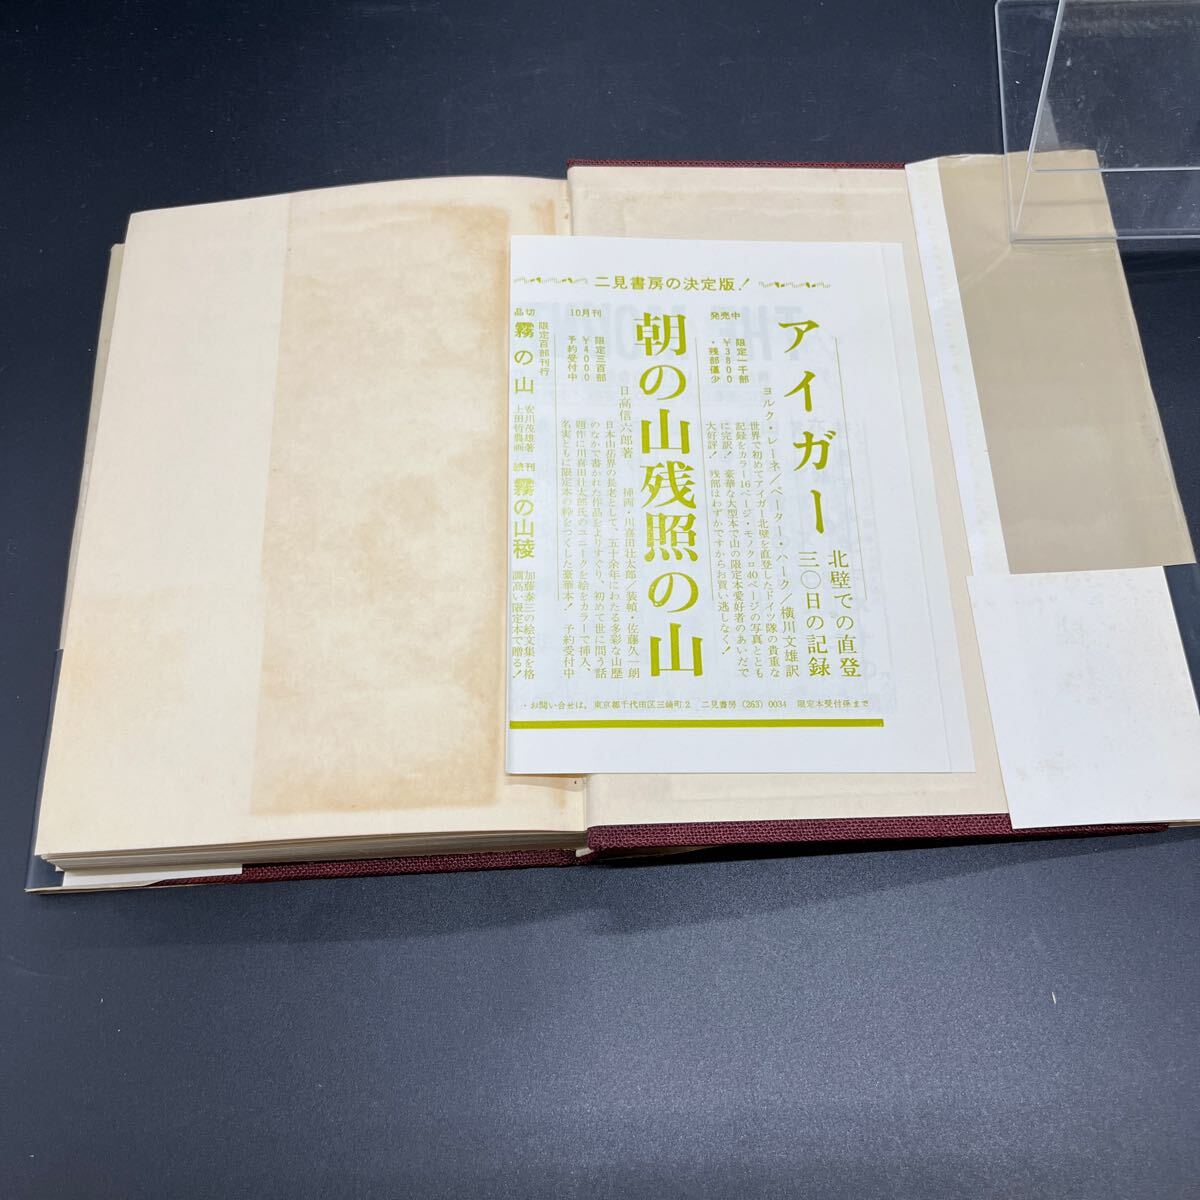 二見書房の決定版!
発売中
アイガー
北壁での直登
三〇日の記録
限定一千部
¥3800
・残部僅少
ヨルク・レーネ/ペーター・ハーク/横川文雄訳
世界で初めてアイガー北壁を直登したドイツ隊の貴重な
記録をカラー16ページ・モノクロ40ページの写真ととも
に完訳! 豪華な大型本で山の限定本愛好者のあいだで
大好評! 残部はわずかですからお買い逃しなく!
10月刊
朝の山残照の山
限定三百部
¥4000
予約受付中
日高信六郎著 挿画・川喜田壮太郎/装幀・佐藤久一朗
日本山岳界の長老として、五十余年にわたる多彩な山歴
のなかで書かれた作品をよりすぐり、初めて世に問う話
題作に川喜田壮太郎氏のユニークを絵をカラーで挿入、
名実ともに限定本の粋をつくした豪華本! 予約受付中
品切
限定百部刊行
霧の山
安川茂雄著
上田哲農画
続刊
霧の山稜
加藤泰三の絵文集を格
調高い限定本で贈る!
・お問い合せは、東京都千代田区三崎町2 二見書房 (263) 0034 限定本受付係まで